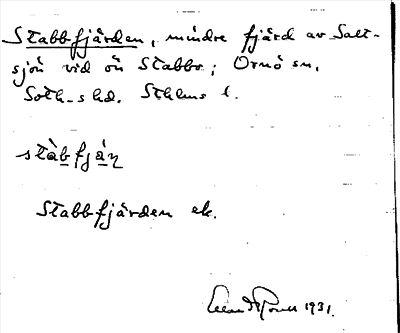 Stabbfjärden, mindre fjärd av Salt-
sjön vid ön Stabbo; Ornö sn,
Soth-s hd. Sthlms l.
stàbfjàṇ
Stabbfjärden ek.
1931.